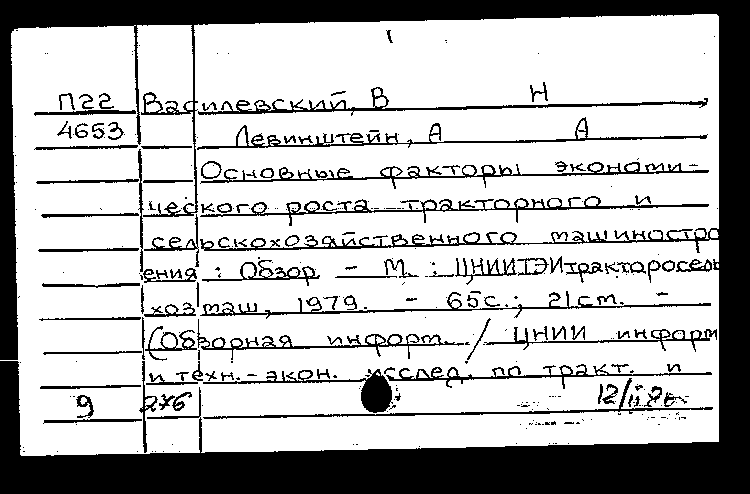 П22 Василевский, В Н
4653 Левинштейн, А А
Основные факторы экономи-
ческого роста тракторного и
сельскохозяйственного машиностро
ения : Обзор – М. : ЦНИИТЭИтракторосель
хозмаш, 1979. – 65с.; 21см. –
(Обзорная информ. / ЦНИИ информ
и техн.-экон. исслед. по тракт. и
9 276